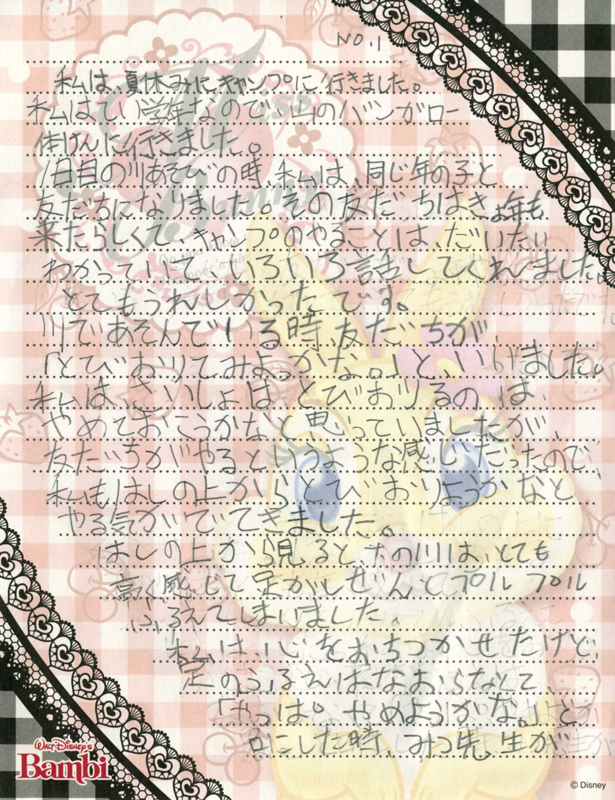 NO.1
私は、夏休みにキャンプに行きました。
私はてい学年なので 山のバンガロー
に行きました。
1日目の川あそびの時 私は、同じ年の子と
友だちになりました。その友だちはきょ年も
来たらしくて、キャンプのやることは、だいたい
わかっていて、いろいろ話してくれました。
とてもうれしかったです。
川であそんでいる時、友だちが、
「とびおりてみようかな。」といいました。
私は、さいしょは、とびおりるのは、
やめておこうかなと思っていましたが、
友だちがやるというような感じだったので、
私もはしの上からとびおりようかなと
やる気がでてきました。
はしの上から見ると、その川は、とても
高く感じて足がしぜんとプルプル
ふるえてしまいました。
私は、心をおちつかせたけど、
足のふるえはなおらなくて、
「やっぱ。やめようかな。」とか
口にした時、みつ先生が
WALT DISNEY'S
Bambi
© Disney